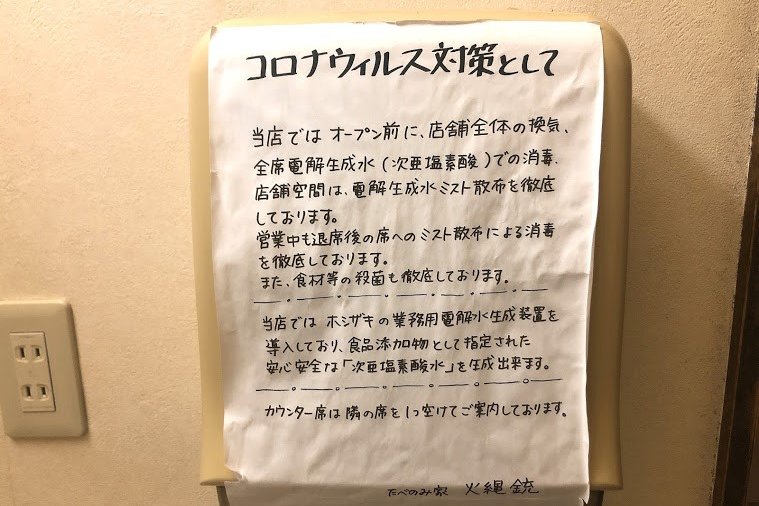 コロナウィルス対策として
当店では オープン前に、店舗全体の換気、
全席電解生成水(次亜塩素酸)での消毒、
店舗空間は、電解生成水ミスト散布を徹底
しております。
営業中も退席後の席へのミスト散布による消毒
を徹底しております。
また、食材等の殺菌も徹底しております。
当店では ホシザキの業務用電解水生成装置を
導入しており、食品添加物として指定された
安心安全な「次亜塩素酸水」を生成出来ます。
カウンター席は隣の席を1つ空けてご案内しております。
たべのみ家 火縄銃